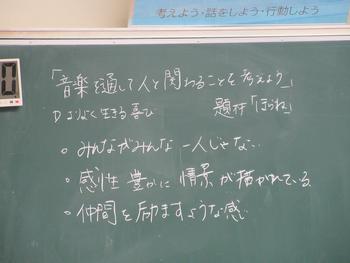 考えよう・話をしよう・行動しよう
「音楽を通して人と関わることを考えよう」
D よりよく生きる喜び 題材「ほらね」
。みんながみんな 一人じゃない
。感性豊かに 情景が描かれている
。仲間を励ますような感じ
0